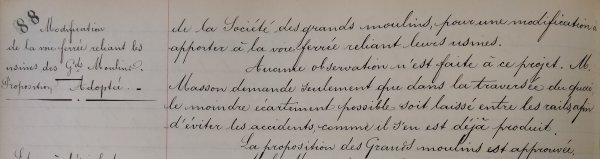 88
Modification
de la voie ferrée reliant les
usines des Gds Moulins.
Proposition Adoptée.
de la Société des grands moulins, pour une modification à
apporter à la voie ferrée reliant leurs usines.
Aucune observation n'est faite à ce projet. M.
Masson demande seulement que dans la traversée du quai
le moindre écartement possible soit laissé entre les rails, afin
d'éviter les accidents, comme il s'en est déjà produit.
La proposition des Grands moulins est approuvée